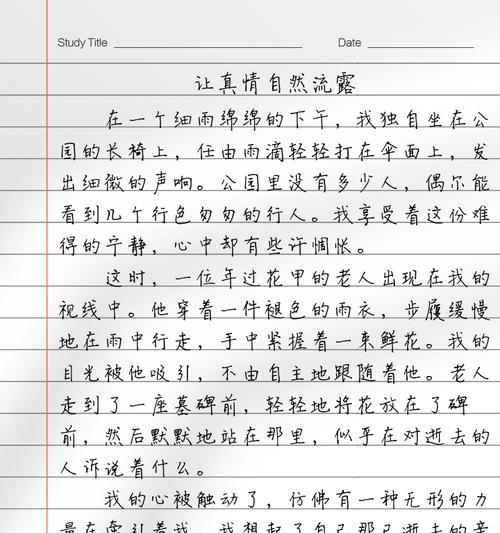 Study Title
Date
让真情自然流露
在一个细雨绵绵的下午，我独自坐在公
园的长椅上，任由雨滴轻轻打在伞面上，发
出细微的声响。公园里没有多少人，偶尔能
看到几个行色匆匆的行人。我享受着这份难
得的宁静，心中却有些许惆怅。
这时，一位年过花甲的老人出现在我的
视线中。他穿着一件褪色的雨衣，步履缓慢
地在雨中行走，手中紧握着一束鲜花。我的
目光被他吸引，不由自主地跟随着他。老人
走到了一座墓碑前，轻轻地将花放在了碑
前，然后默默地站在那里，似乎在对逝去的
人诉说着什么。
我的心被触动了，仿佛有一种无形的力
量在牵引着我。我想起了自己那已逝去的亲